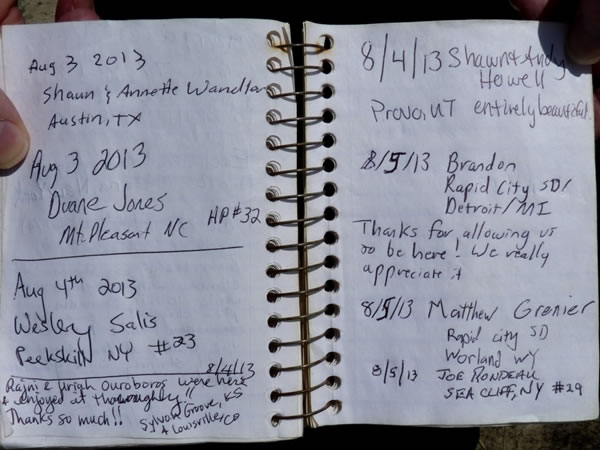 Aug 3 2013
Shaun & Annette Wandtan
Austin, TX
Aug 3 2013
Duane Jones
Mt. Pleasant NC HP#32
Aug 4th 2013
Wesley Salis
Peekskill NY #23
8/4/13
Rajni & Urigh Ouroboros were here
& enjoyed at thoroughly!!
Thanks so much!! Sylvan Grove, KS
& Lowsville, CO
8/4/13 Shawn & Andy
Howell
Provo, UT entirely beautiful.
8/5/13 Brandon
Rapid City SD/
Detroit/MI
Thanks for allowing us
to be here! We really
appreciate it
8/5/13 Matthew Grenier
Rapid city SD
Worland WY
8/5/13 JOE RONDEAU
SEA CLIFF, NY #29